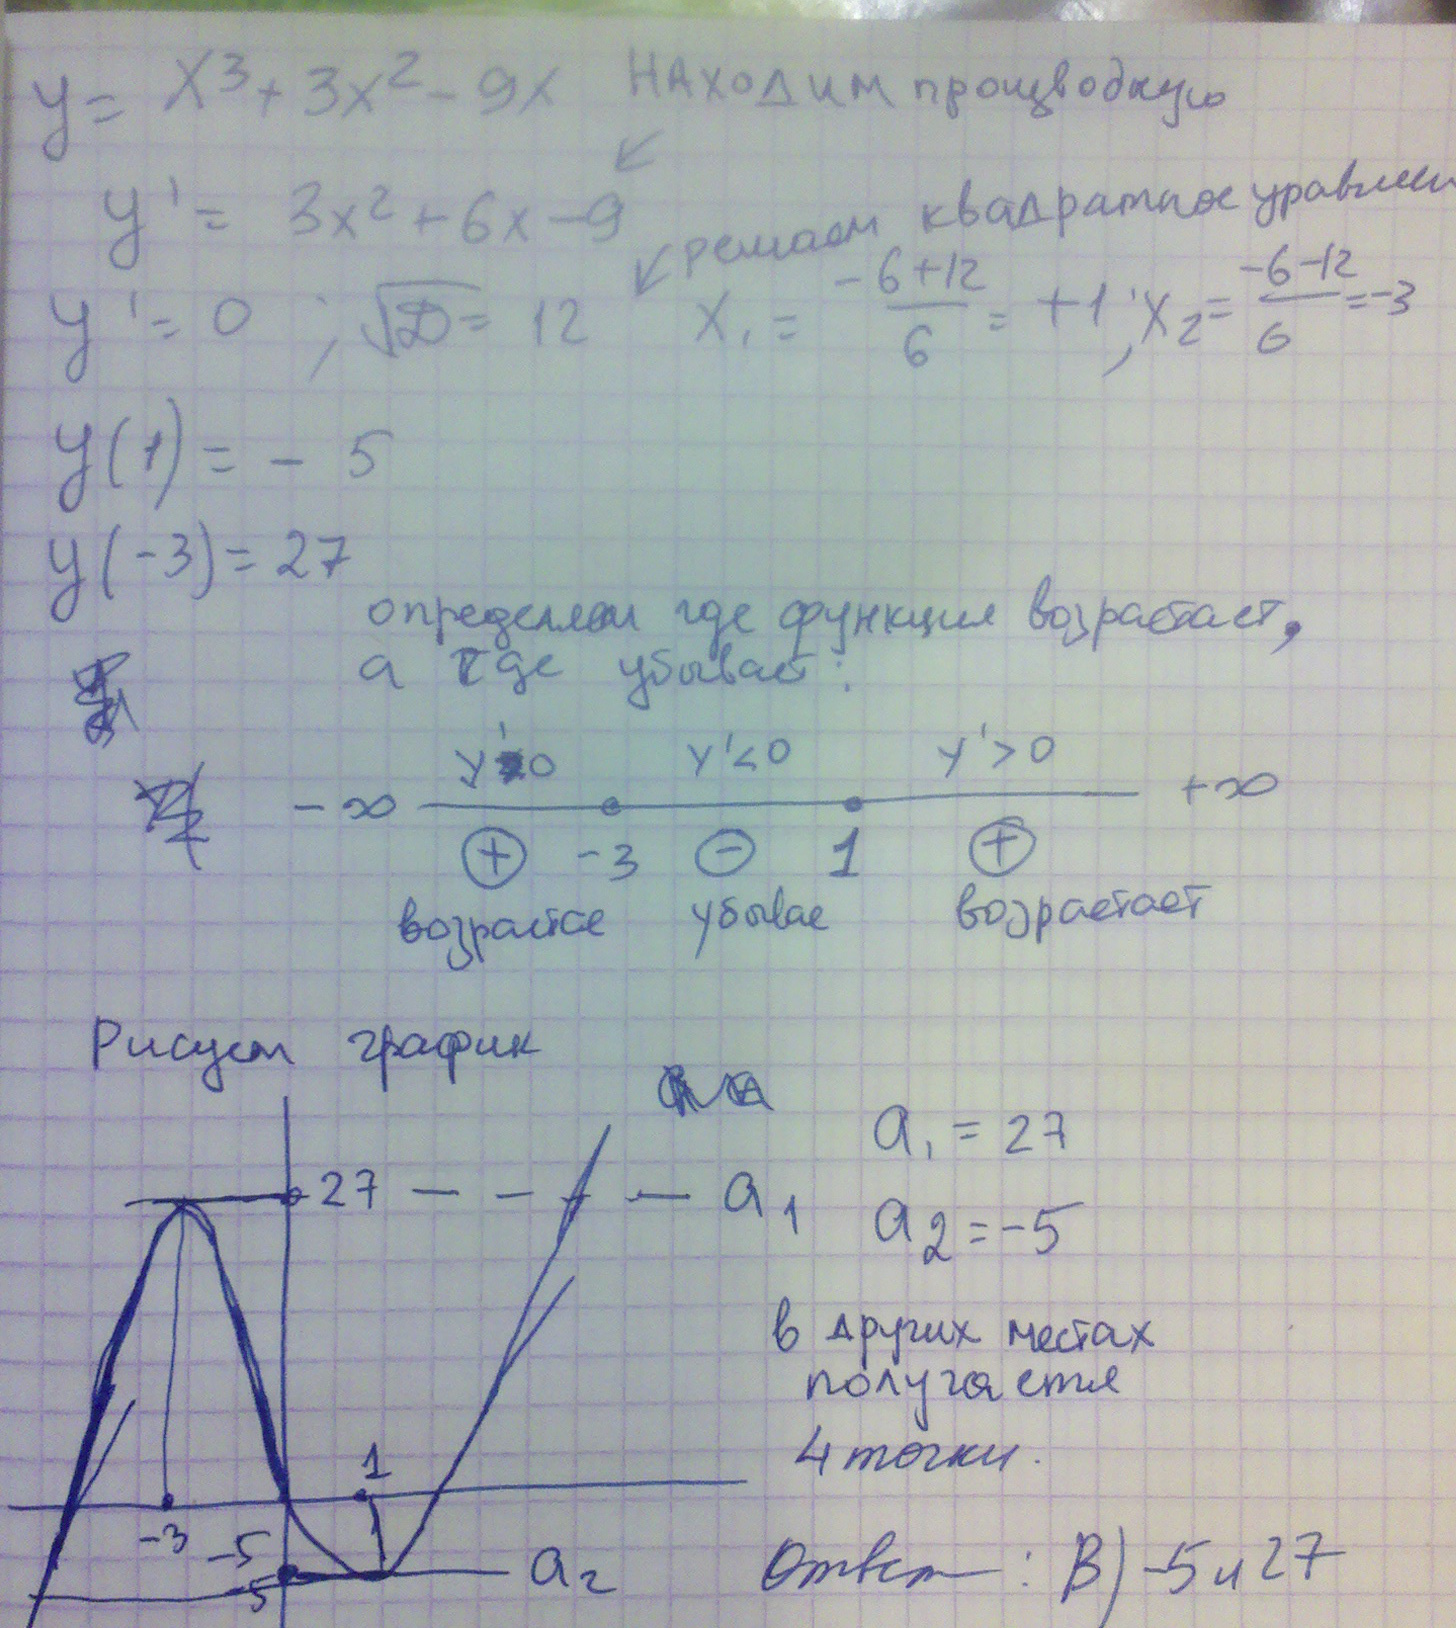 y = x³ + 3x² - 9x находим производную
y' = 3x² + 6x - 9
решаем квадратное уравнен
y' = 0 ; √D = 12 x₁ = (-6+12)/6 = +1 ; x₂ = (-6-12)/6 = -3
y(1) = - 5
y(-3) = 27
определяем где функция возрастает,
а где убывает:
y'>0 y'<0 y'>0
- ∞ -3 1 +∞
+ - +
возрастае убывае возрастает
Рисуем график
27 a₁
a₁ = 27
a₂ = -5
в других местах
получается
4 точки.
1
-3
-5
-5
a₂
Ответ : В) -5 и 27